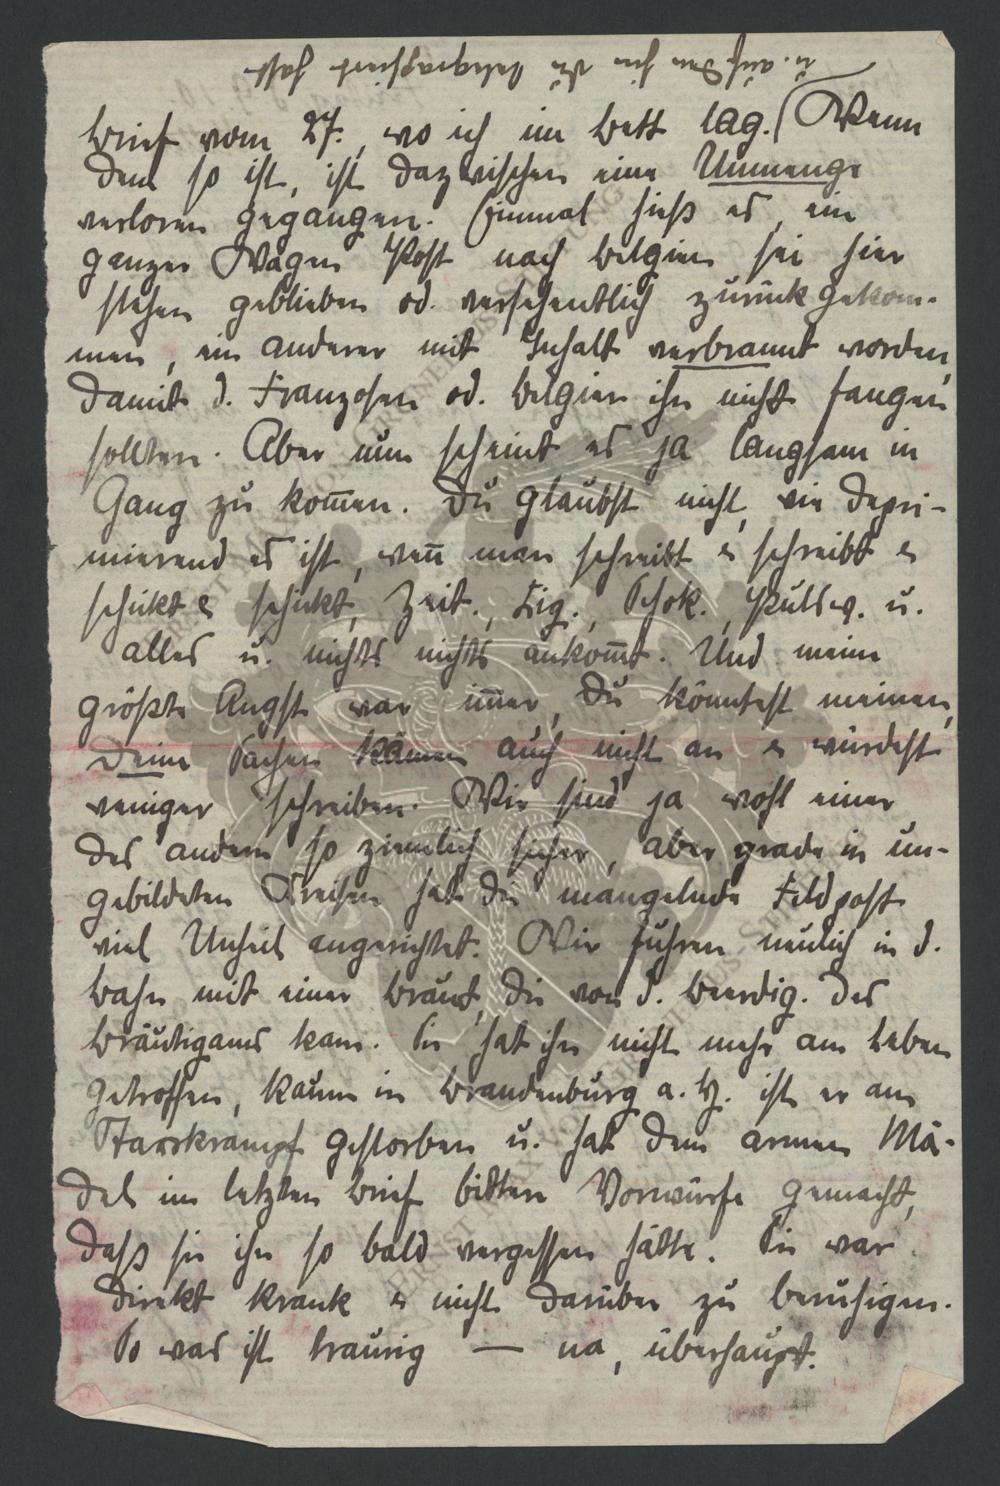 u. auf den hin Du telegraphiert hast
brief vom 27., wo ich im bett lag. (Wenn
dem so ist, ist dazwischen eine Unmenge
verloren gegangen. Einmal hieß es, ein
ganzer Wagen Post nach belgien sei hier
stehen geblieben od. versehentlich zurückgekom-
men, ein anderer mit Inhalt verbrannt worden,
damit d. Franzosen od. belgier ihn nicht fangen
sollten. Aber nun scheint es ja langsam in
Gang zu kom̅en. Du glaubst nicht, wie depri-
mierend es ist, wen̅ man schreibt & schreibt &
schickt & schickt, Zeit., Zig., Schok., Pulsw. u.
alles u. nichts nichts ankom̅t. Und meine
größte Angst war im̅er, Du könntest meinen,
Deine Sachen kämen auch nicht an & würdest
weniger schreiben. Wir sind ja wohl einer
des andern so ziemlich sicher, aber grade in un-
gebildeten Kreisen hat die mangelnde Feldpost
viel Unheil angerichtet. Wir fuhren neulich in d.
bahn mit einer braut, die von d. beerdig. des
bräutigams kam. Sie hat ihn nicht mehr am Leben
getroffen, kaum in brandenburg a. H. ist er am
Starrkrampf gestorben u. hat dem armen Mä-
del im letzten brief bittere Vorwürfe gemacht,
daß sie ihn so bald vergessen hätte. Sie war
direkt krank & nicht darüber zu beruhigen.
So was ist traurig — na, überhaupt.